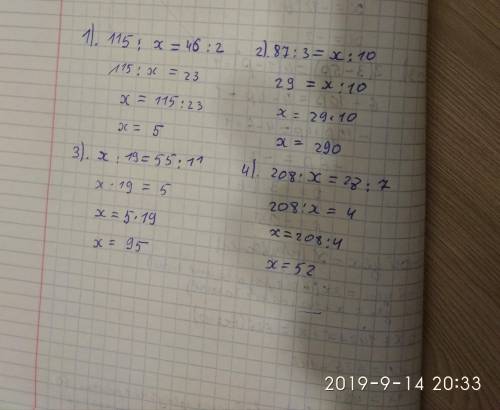 1). 115 : x = 46 : 2
115 : x = 23
x = 115 : 23
x = 5
2). 87 : 3 = x : 10
29 = x : 10
x = 29 · 10
x = 290
3). x : 19 = 55 : 11
x · 19 = 5
x = 5 · 19
x = 95
4). 208 : x = 28 : 7
208 : x = 4
x = 208 : 4
x = 52
2019-9-14 20:33